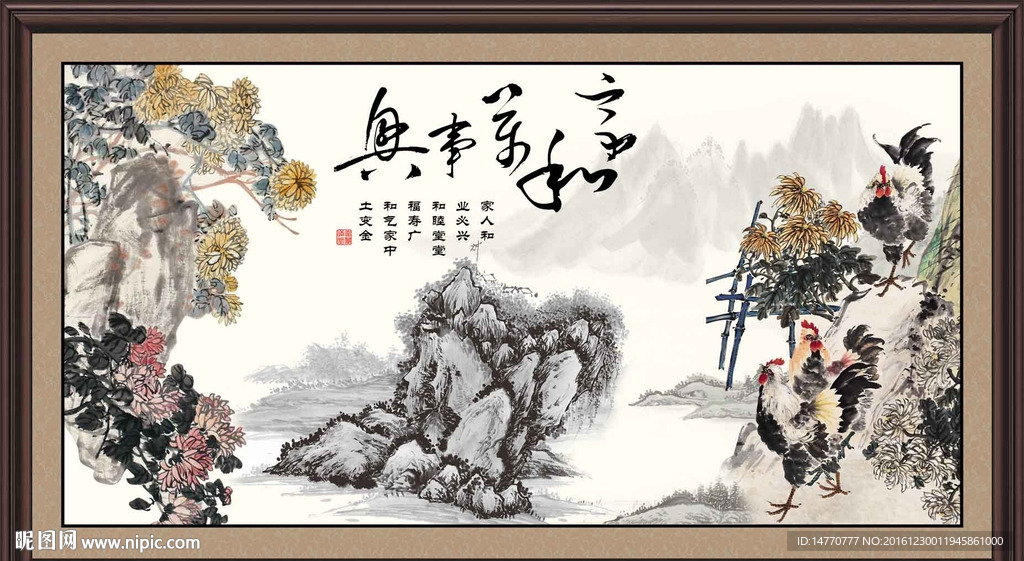 家和萬事興
家人和
业必兴
和睦堂堂
福寿广
和气家中
土变金
昵图网 www.nipic.com
ID:14770777 NO:20161230011945861000